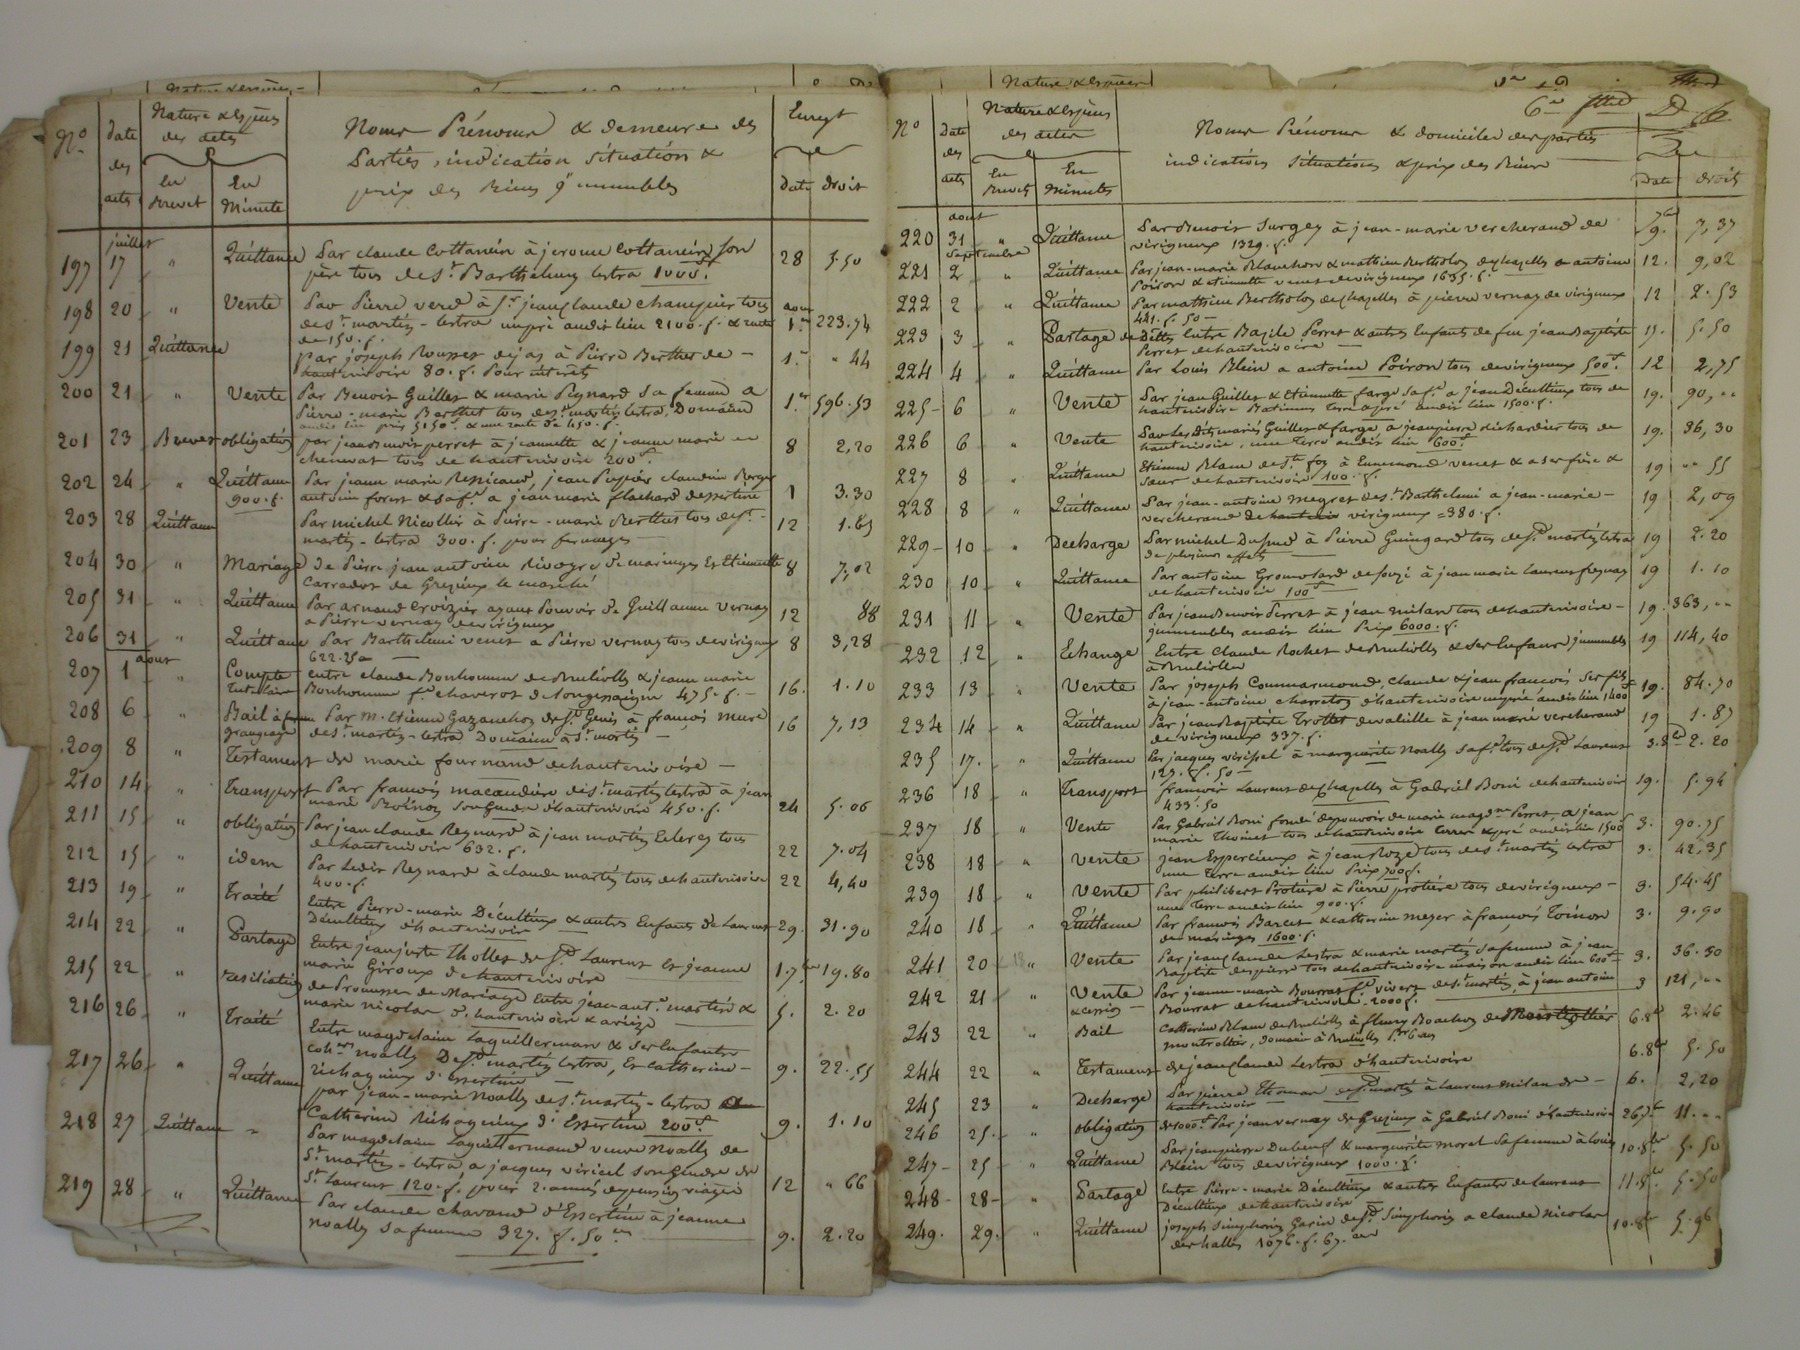 Nature & Espèces
No
date des actes
Nature & Espèces des actes
En Brevet
En Minute
Noms Prénoms & demeure des
Parties, indication Situation &
prix des Biens immeubles
Enregt
Date droit
juillet
197 17 " Quittance Par claude Cottancin à jerome Cottancin son 28 5.50
père tous de St Barthelemy Lestra 1000 f.
198 20 " Vente Par Pierre verd à Sr jean claude chanquier tous aout
de St martin-Lestra un pré audit lieu 2100. f. & rente 1.er 223.74
de 150. f.
199 21 Quittance par joseph Rousset de jas à Pierre Berthet de - 1.er " 44
hauterivoire 80. f. Pour intérêts
200 21 " Vente Par Benoit Guillet & marie Peynard sa femme a
Pierre-marie Berthet tous de St martin Lestra, Domaine 1.er 596.53
audit lieu prix 5150 f. & une rente de 450. f.
201 23 Brevet obligation par jean Benoit perret à jeannette & jeanne marie 8 2,20
tous de hauterivoire 200 f.
202 24 " Quittance Par jeanne marie jean Pupier claudine Berger
900. f. antoine forest & sa fe a jean marie flachard 1 3.30
203 28 Quittance Par michel Nicollin à Pierre-marie Berthet tous de St - 12 1.65
martin-Lestra 300. f. pour fermages
204 30 " Mariage de Pierre jean antoine de maringes Et Etiennette 8 7,02
de Grezieux le marché
205 31 " Quittance Par arnaud Croizier ayant Pouvoir de Guillaume vernay 12 88
a Pierre vernay de virigneux
206 31 " Quittance Par Barthelemi venet a Pierre vernay tous de virigneux 8 3,28
622.25
aout
207 1 " Compte entre claude Bonhomme de Brulliolles & jeanne marie
Tutelaire Bonhomme fe chaverot de Longessaigne 475. f. - 16. 1.10
208 6 " Bail à Par M. Etienne Gazanchon de St Genis à francois mure 16 7,13
grangeage de St martin-Lestra Domaine à St martin
209 8 " Testament de marie fournand de hauterivoire -
210 14 " Transport Par francois macaudière de St martin Lestra à jean
marie son Gendre d'hauterivoire 450. f. 24 5.06
211 15 " obligation Par jean claude Reynard à jean martin tous
de hauterivoire 632. f. 22 7.04
212 15 " idem Par Ledit Reynard à claude martin tous de hauterivoire 22 4,40
400. f.
213 19 " Traité Entre Pierre-marie Décultieux & autres Enfants de Laurent 29. 31.90
Décultieux d'hauterivoire
214 22 " Partage Entre jean Thollet de St Laurent Et jeanne
marie Giroux de hauterivoire 1.7bre 19.80
215 22 " resiliation de Promesses de Mariage Entre jean ant.e martin &
marie nicolas d'hauterivoire & 5. 2.20
216 26 " Traité Entre magdelaine Laquillermaux & ses Enfants
noally De St martin Lestra, Et catherine -
richagneux d'Essertine 9. 22.55
217 26 " Quittance par jean-marie noally de St martin-Lestra a
Catherine Richagneux d'Essertine 200 f. 9. 1.10
218 27 Quittance " Par magdelaine Laquillermaud veuve Noally de
St martin-Lestra a jacques viricel son Gendre de
St Laurent 120. f. pour 2. années de pension viagère 12 " 66
219 28 " Quittance Par claude chavand d'Essertine à jeanne
noally sa femme 327. f. 50 c. 9. 2.20
Nature & Espèces
No
Date des actes
Nature & Espèces des actes
En Brevet
En Minutes
Noms Prénoms & domiciles des parties
indications Situations & prix des Biens
Date droits
aout
220 31 " Quittance Par Benoit Surgey à jean-marie vercherand de 7bre 9. 7,37
virigneux 1329. f.
Septembre
221 2 " Quittance Par jean-marie Blanchon & mathieu Bertholon de chazelles a antoine 12. 9,02
Poiron & etiennette venet de virigneux 1635. f.
222 2 " Quittance Par mathieu Bertholon de chazelles à pierre vernay de virigneux 12 2.53
441. f. 50 -
223 3 " Partage de Dettes Entre Bazile Perret & autres Enfants de feu jean Baptiste 15. 5.50
Perret de hauterivoire
224 4 " Quittance Par Louis Blein a antoine Poiron tous de virigneux 500 f. 12 2,75
225 6 " Vente Par jean Guillet & Etiennette farge sa fe a jean Décultieux tous de 19. 90,..
hauterivoire Batiment Terre & pré audit lieu 1500. f.
226 6 " Vente Par Les dits mariés Guillet & farge à jean pierre Richardier tous de 19. 36,30
hauterivoire, une Terre audit lieu 600 f.
227 8 " Quittance Etienne Blanc de Ste foy à Ennemond venet & a ses frère & 19 " 55
Sœur de hauterivoire 100. f.
228 8 " Quittance Par jean-antoine megret de St Barthelemi a jean-marie - 19 2,09
vercherand de hauterivoire virigneux = 380. f.
229 10 " Decharge Par michel Dufaud à Pierre Guingard tous de St martin Lestra 19 2.20
de plusieurs effets
230 10 " Quittance Par antoine de à jean marie Laurent 19 1.10
de hauterivoire 100 f.
231 11 " Vente Par jean Benoit Perret à jean milan tous de hauterivoire - 19. 363,..
immeubles audit lieu Prix 6000. f.
232 12 " Echange Entre Claude Rochet de Brulliolles & ses Enfants immeubles 19 114,40
à Brulliolles
233 13 " Vente Par joseph claude & jean francois ses fils 19. 84.70
à jean-antoine charreton d'hauterivoire un pré audit lieu 1400 f.
234 14 " Quittance Par jean Baptiste Trottet de valeille à jean marie vercherand 19 1.87
de virigneux 337. f.
235 17. " Quittance Par jacques viricel à marguerite Noally sa fe tous de St Laurent 3.8bre 2.20
127. f. 50 -
236 18 " Transport francois Laurent de chazelles à Gabriel Boni de hauterivoire 19. 5.94
433. f. 50
237 18 " Vente Par Gabriel Boni fondé de pouvoir de marie magd.ne Perret, a jean
marie Thoinet tous de hauterivoire Terre & pré audit lieu 1500 f. 3. 90.75
238 18 " Vente jean Expercieux à jean Rozet tous de St martin Lestra 3. 42,35
une Terre audit lieu Prix 700 f.
239 18 " Vente Par philibert Protière à Pierre protière tous de virigneux - 3. 54.45
une Terre audit lieu 900. f.
240 18 " Quittance Par francois Barcet & catherine meyer à francois Toinon 3. 9.90
de maringes 1600. f.
241 20 " Vente Par jean claude Lestra & marie martin sa femme à jean
Baptiste despierre tous de hauterivoire maison audit lieu 600 f. 3. 36.30
242 21 " Vente Par jeanne-marie Bourrat fe vivert de St martin, à jean antoine 3 121,..
& cession Bourrat de hauterivoire 2000 f.
243 22 " Bail Catherine Blanc de Brulliolles à fleury Bouchoy de Montrottier 6.8bre 2.46
montrottier, domaine à Brulliolles Pr 6 ans
244 22 " Testament de jean claude Lestra d'hauterivoire 6.8bre 5.50
245 23 " Decharge Par pierre Thomas de St martin à Laurent milan de - 6. 2,20
hauterivoire
246 25. " obligation de 1000 f. Par jean vernay de Grezieux à Gabriel Boni d'hauterivoire 26 7bre 11...
247 25 " Quittance Par jean pierre Dubeuf & marguerite morel sa femme à Louis 10.8bre 5.50
Blein tous de virigneux 1000. f.
248 28 " Partage Entre Pierre-marie Décultieux & autres Enfants de Laurent 11.8bre 5.50
Décultieux de hauterivoire
249. 29. " Quittance joseph Simphorien Garin de St Simphorien a claude Nicolas 10.8bre 5.96
des halles 1076. f. 67. c.